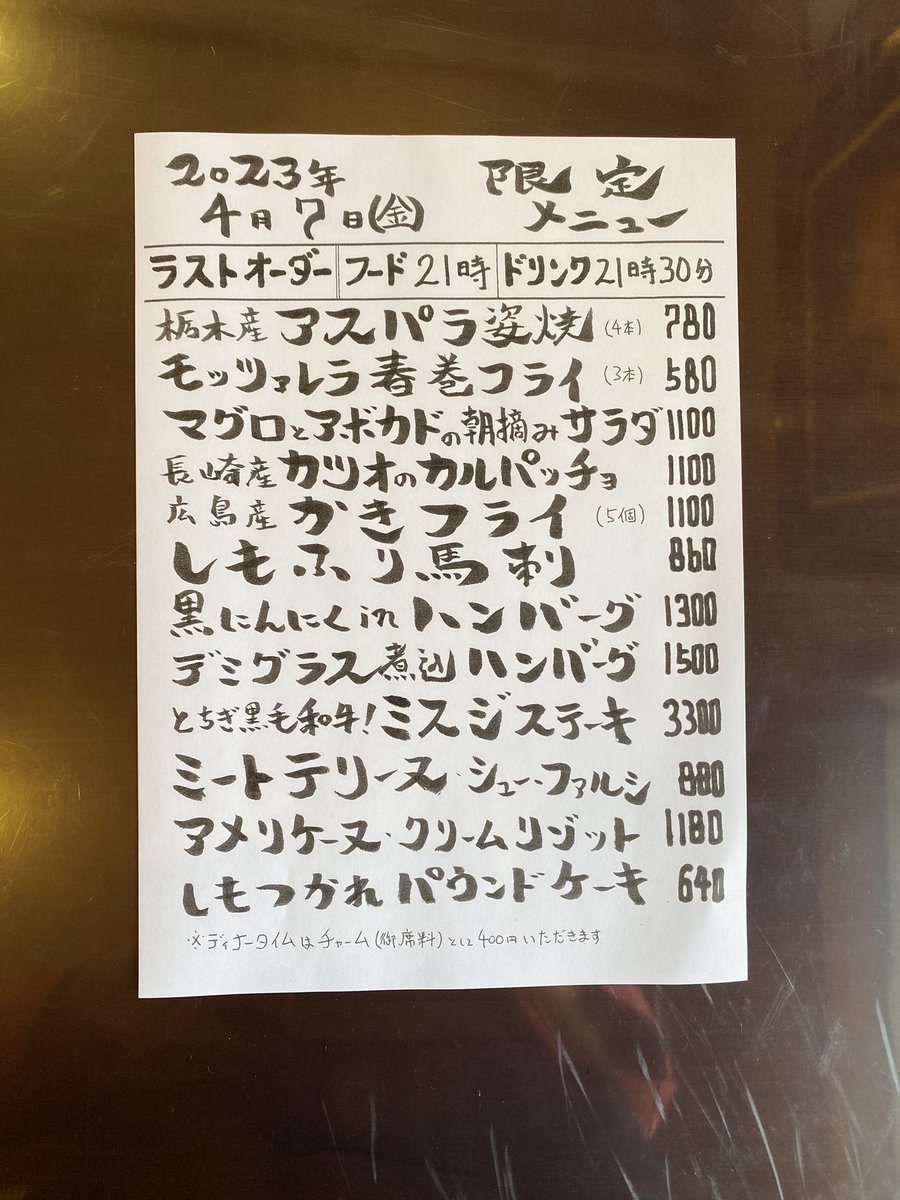 2023年 限定
4月7日(金) メニュー
ラストオーダー フード21時 ドリンク21時30分
栃木産 アスパラ姿焼 (4本) 780
モッツァレラ春巻フライ (3本) 580
マグロとアボカドの朝摘みサラダ 1100
長崎産 カツオのカルパッチョ 1100
広島産 かきフライ (5個) 1100
しもふり馬刺 860
黒にんにくinハンバーグ 1300
デミグラス煮込ハンバーグ 1500
とちぎ黒毛和牛!ミスジステーキ 3300
ミートテリーヌ・シュー・ファルシ 880
アメリケーヌ・クリームリゾット 1180
しもつかれパウンドケーキ 640
※ディナータイムはチャーム(御席料)として400円いただきます